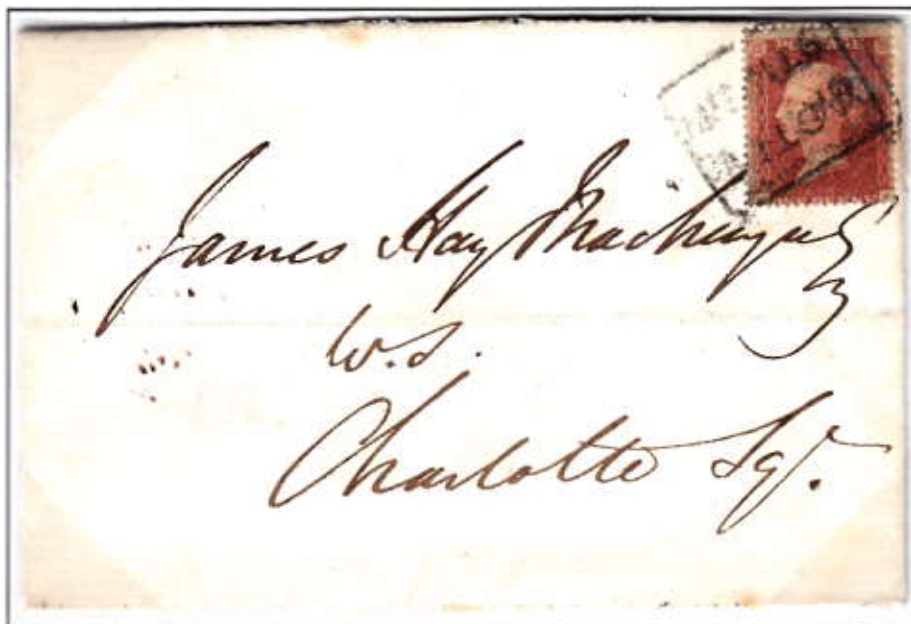 POSTAGE
James Hay Mackenzie Esq
W.S.
Charlotte Sqr.